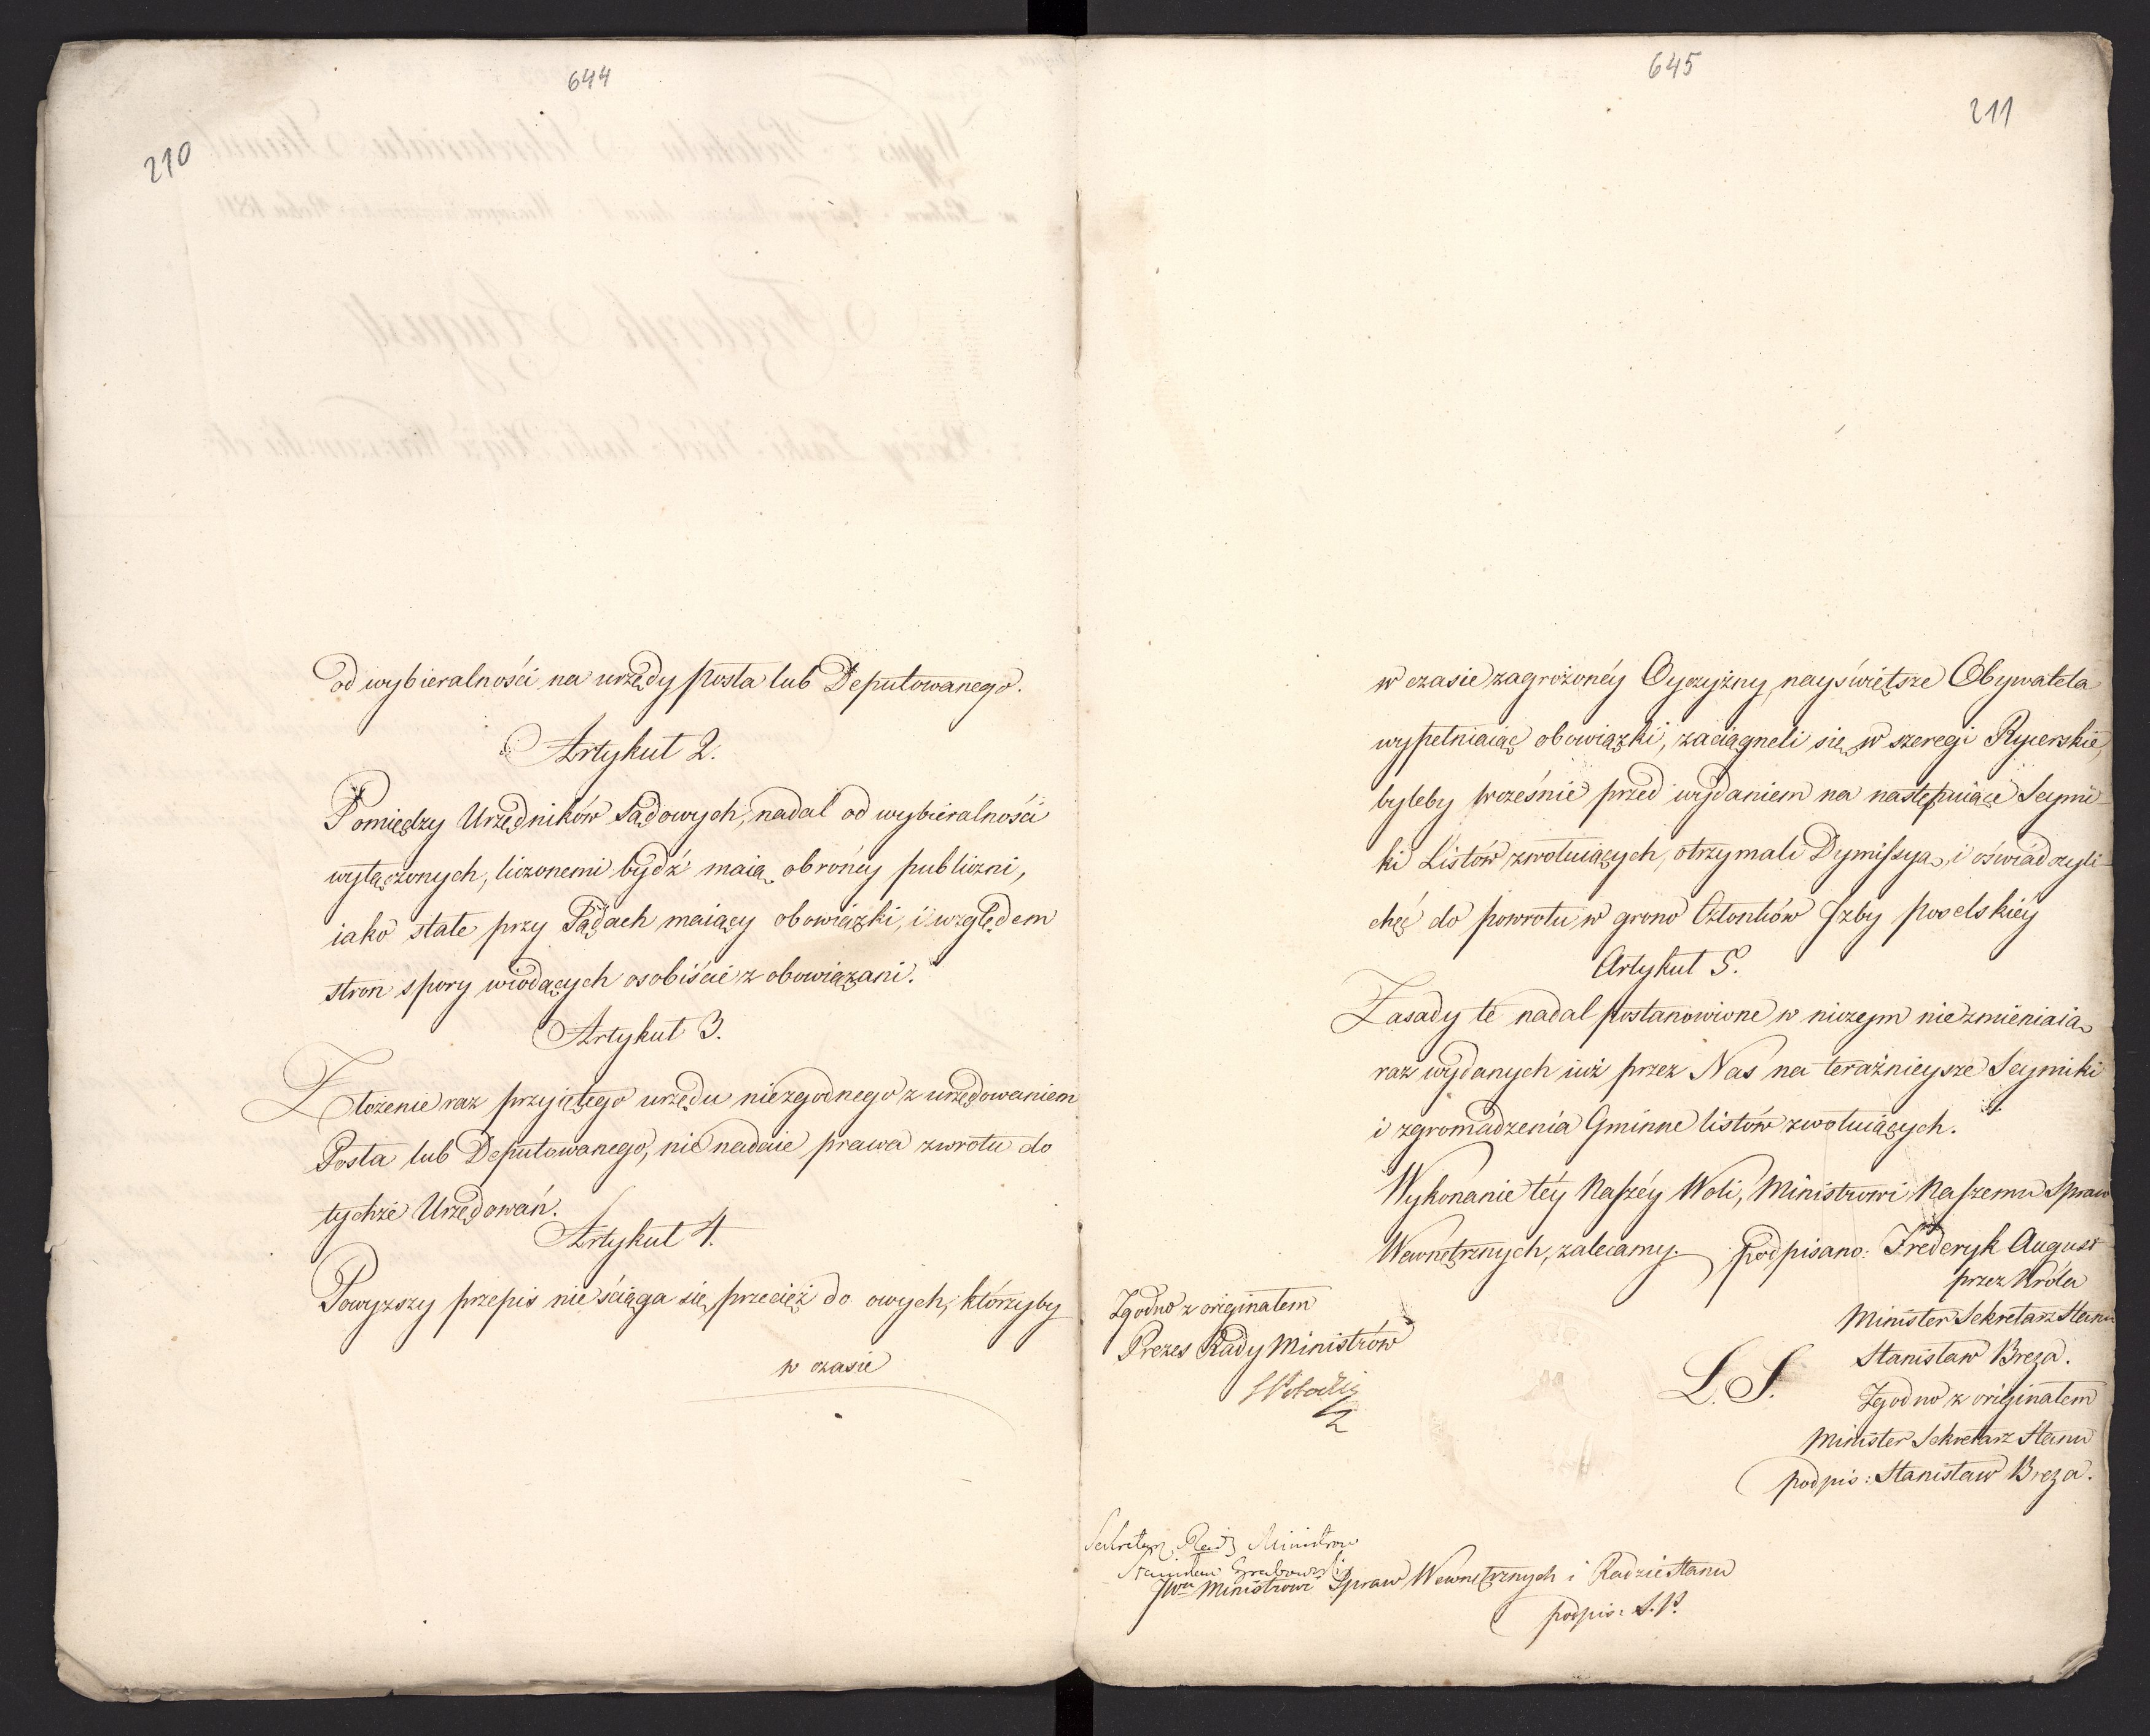 644
210
od wybieralności na urzędy Posła lub Deputowanego.
Artykuł 2.
Pomiędzy Urzędników Sądowych, nadal od wybieralności
wyłączonych, liczonemi bydź maią obrońcy publiczni,
iako stałe przy Sądach maiący obowiązki, i względem
stron spory wiodących osobiście zobowiązani.
Artykuł 3.
Złożenie raz przyiętego urzędu niezgodnego z urzędowaniem
Posła lub Deputowanego, nie nadaie prawa zwrotu do
tychże Urzędowań.
Artykuł 4.
Powyższy przepis nie ściąga się przecięż do owych, którzyby
w czasie
645
211
w czasie zagrożonéy Oyczyżny, nayświętsze Obywatela
wypełniaiąc obowiązki, zaciągneli się w szeregi Rycerskie,
byleby wcześnie przed wydaniem na następuiące Seymi-
ki Listów zwołuiących, otrzymali Dymissyą, i oświadczyli
chęć do powrotu w grono Członków Izby Poselskiéy
Artykuł 5.
Zasady te nadal postanowione w niczym nie zmieniaią
raz wydanych iuż przez Nas na teraźnieysze Seymiki
i zgromadzenia Gminne listów zwołuiących.
Wykonanie téy Naszéy Woli, Ministrowi Naszemu Spraw
Wewnętrznych, zalecamy. podpisano: Frederyk August
przez Króla
Minister Sekretarz Stanu
Stanisław Breza.
L. S.
Zgodno z originałem
Minister Sekretarz Stanu
podpis: Stanisław Breza.
Zgodno z originałem
Prezes Rady Ministrów
Sekretarz Rady Ministrow
Stanisław Grabowski
JWu Ministrowi Spraw Wewnętrznych i Radzie Stanu
podpis: S. P.